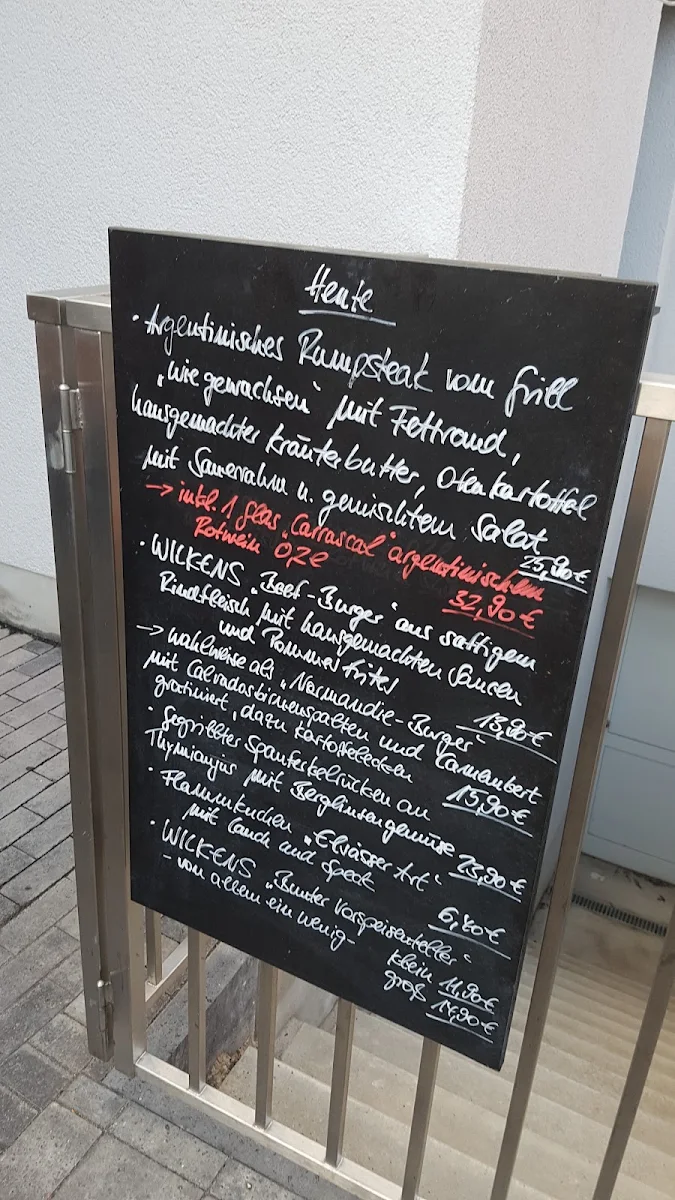 Heute
· Argentinisches Rumpsteak vom Grill
"wie gewachsen" mit Fettrand,
hausgemachter Kräuterbutter, Ofenkartoffel
mit Sauerrahm u. gemischtem Salat
25,90€
→ inkl. 1 Glas "Carrascal" argentinischem
Rotwein 0,2l 32,90€
· WILKENS "Beef-Burger" aus saftigem
Rindfleisch mit hausgemachten Saucen
und Pommes frites 13,90€
→ wahlweise als "Normandie-Burger"
mit Calvadosbirnenspalten und Camenbert
gratiniert, dazu Kartoffelecken 15,90€
· Gegrillter Spanferkelrücken an
Thymianjus mit Berglinsengemüse 23,90€
· Flammkuchen "Elsässer Art"
mit Lauch und Speck 6,80€
· WILKENS "Bunter Vorspeisenteller"
- von allem ein wenig -
klein 11,90€
groß 14,90€